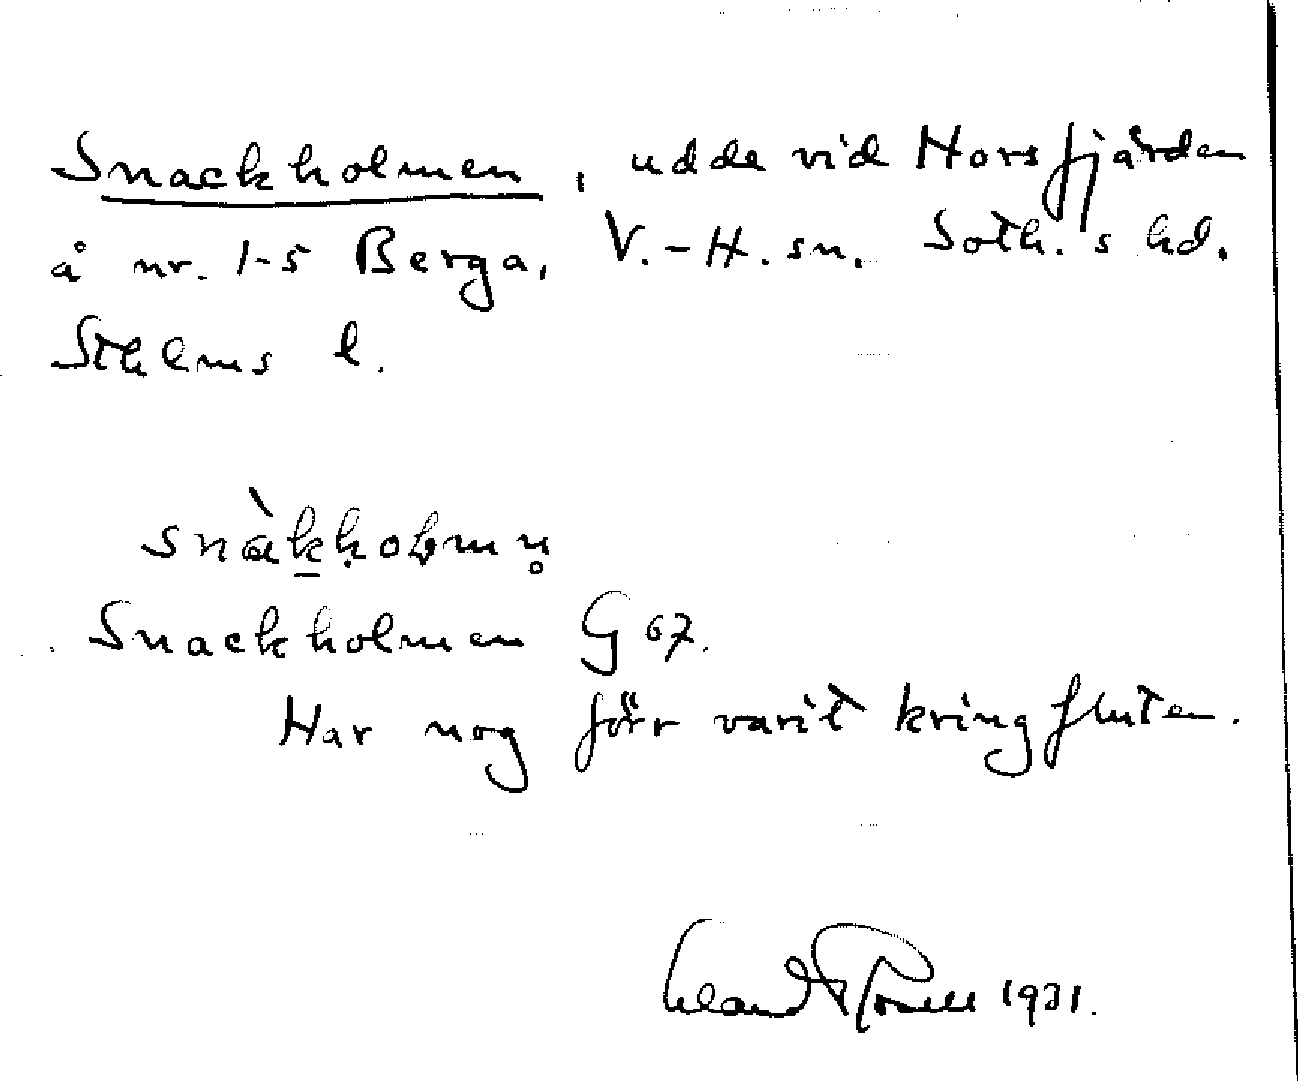 Snackholmen, udde vid Horsfjärden
å nr. 1-5 Berga, V.-H. sn. Soth.'s hd.
Sthlms l.
snàk̲ḥoɬmn̥
Snackholmen G 67.
Har nog förr varit kringfluten.
1931.